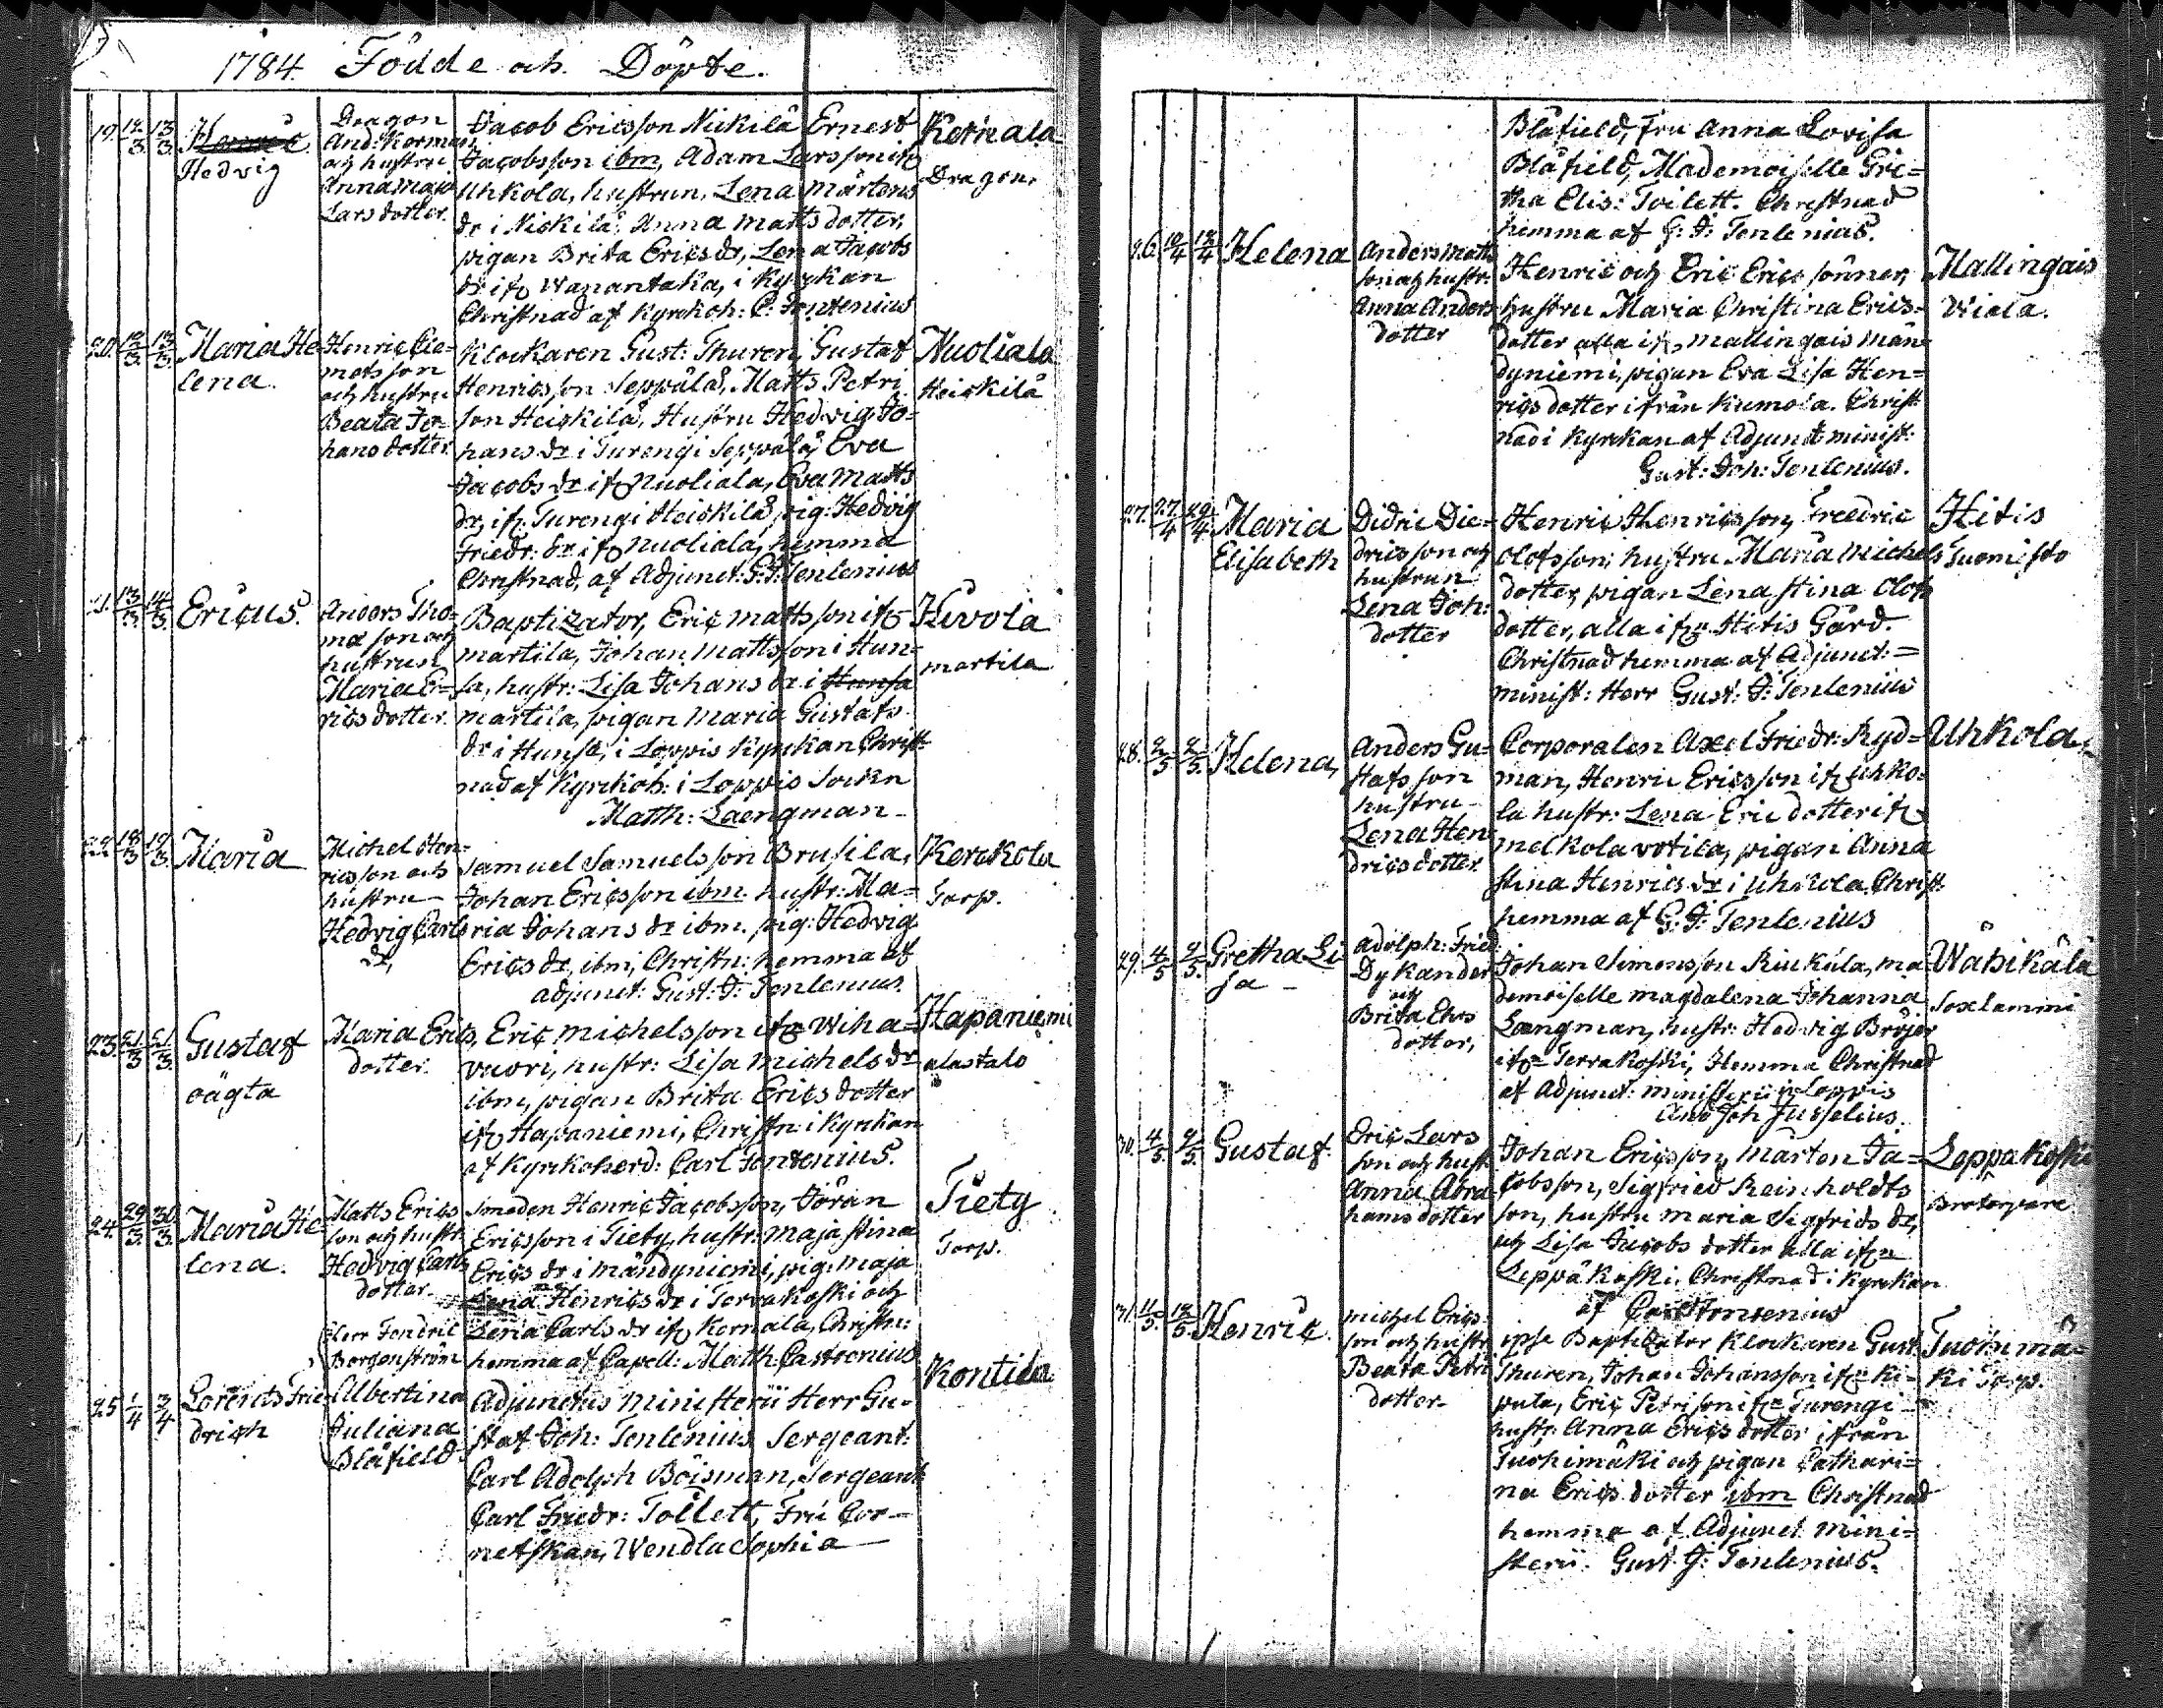 1784. Födde och Döpte.
19. 12/3. 13/3. Henric.
Hedvig
Dragon
And: Korman
och hustru
Anna Maja
Lars dotter.
Jacob Ericsson Nickilä Ernest
Jacobsson ibm, Adam Larsson if
Uhkola, hustrun, Lena Mårtens
dr i Nickilä, Anna Matts dotter,
pigan Brita Erics dr, Lena Jacobs
dr if Wanantaka, i Kyrkan
Christnad af Kyrckoh: C: Fontenius
Kernala
Dragon.
20. 12/3. 13/3. Maria He-
lena.
Henric Cle-
metsson
och hustru
Beata Jo-
hans dotter.
Klockaren Gust: Thuren, Gustaf
Henricsson Seppälä, Matts Petri
son Heickilä, Hustru Hedvig Jo-
hans dr i Turengi Seppälä, Eva
Jacobs dr if Nuoliala, Eva Matts
dr, if Turengi Heickilä, pig: Hedvig
Friedr: dr if Nuoliala, hemma
Christnad, af Adjunct: G: J: Tenlenius
Nuoliala
Heickilä
21. 13/3. 14/3. Ericus.
Anders Tho-
ma son och
hustrun
Maria E-
rics dotter.
Baptizator, Eric Matts son if
Martila, Johan Mattsson i Hun-
sa, hustr: Lisa Johans dr i Hunsa
Martila, pigan Maria Gustafs
dr i Hunsa, i Loppis Kyrkan Christ-
nad af Kyrckoh: i Loppis Sockn
Matth: Laengman
Kivola
Martila
22. 18/3 19/3. Maria
Michel Hen-
ricsson och
hustru
Hedvig Carls
dr,
Samuel Samuelsson Brusila,
Johan Ericsson ibm. hustr: Ma-
ria Johans dr ibm. pig: Hedvig
Erics dr, ibm, Christn: hemma af
adjunct: Gust: J: Tenlenius.
Kerckola
Torp.
23. 21/3 21/3. Gustaf
oägta
Maria Erics
dotter.
Eric Michelsson if Wiha-
vuori, hustr: Lisa Michels dr
ibm, pigan Brita Erics dotter
if Hapaniemi, Christn: i Kyrckan
af Kyrckoherd: Carl Fontenius.
Hapaniemi
alastalo
24. 29/3. 30/3. Maria He-
lena.
Matts Erics
son och hustr
Hedvig Carls
dotter.
Smeden Henric Jacobsson, Jöran
Ericsson i Tiety, hustr: Maja Stina
Erics dr i Mändyniemi, pig: Maja
Lena Henrics dr i Tervakoski och
Lena Carls dr if Kernala, Christn:
hemma af Capell: Matth Castrenius
Tiety
Torp.
25 1/4 3/4 Lorents Frie-
drich
Herr Fendric
Borgenström
Albertina
Juliana
Blåfield
Adjunctus Ministerii Herr Gu-
staf Joh: Tenlenius Sergeant:
Carl Adolph Böisman, Sergeant
Carl Friedr: Tollett, Fru Cor-
netskan, Wendla Sophia
Kontila
Blåfield, Fru Anna Lovisa
Blåfield, Mademoiselle Gre-
tha Elis: Toilett. Christnad
hemma af G: J: Tenlenius.
26. 10/4 12/4 Helena
Anders Matts
son och hustr:
Anna Anders
dotter
Henric och Eric Erics söner,
hustru Maria Christina Erics-
dotter alla if Mallingais män
dyniemi, pigan Eva Lisa Hen-
rics dotter ifrån Kumola. Christ
nad i Kyrckan af Adjunct minist:
Gust: Joh: Tenlenius.
Mallingais
Wiala.
27. 27/4 29/4 Maria
Elisabeth
Didric Die-
dricsson och
hustrun
Lena Joh:
dotter
Henric Henricsson, Fredric
Olofsson, hustru Maria Michels
dotter, pigan Lena Stina Olofs
dotter, alla ifr. Hitis Gård.
Christnad hemma af Adjunct:
minist: Herr Gust: J: Tenlenius
Hitis
Suomisto
28. 2/5 2/5. Helena,
Anders Gu-
stafsson
hustru
Lena Hen-
drics dotter
Corporalen Axel Friedr: Ryd-
man, Henric Ericsson if Uhko-
la hustr: Lena Eric dotter if
Melkola Votila, pigan Anna
Stina Henrics dr i Uhkola, Christ
hemma af G: J: Tenlenius
Uhkola
29. 4/5 9/5. Gretha Li-
sa
Adolph: Fried:
Dykander
och
Brita Ehrs
dotter,
Johan Simonsson Riukula, ma-
demoiselle Magdalena Johanna
Laengman, hustr: Hedvig Bröjer
ifr Tervakoski, Hemma Christnad
af Adjunct: Ministerii i Loppis
And Joh Jusselius.
Wähikälä
Soxlammi
30. 4/5. 9/5. Gustaf.
Eric Lars
son och hustr
Anna Abra
hams dotter
Johan Ericsson, Mårten Ja-
cobsson, Sigfried Reinholdts
son, hustru Maria Sigfrids dr,
och Lisa Jacobs dotter alla ifr
Leppäkoski, Christnad i Kyrckan
af Carl Fontenius
Leppäkoski
31. 11/5. 13/5. Henric.
Michel Erics
son och hustr
Beata Petri
dotter.
ipse Baptizator Klockaren Gust
Thuren, Johan Johansson ifr Ki-
pula, Eric Petri son ifr Turengi
hustr: Anna Erics dotter ifrån
Tuohimäki och pigan Cathari-
na Erics dotter ibm Christnad
hemma af Adjunct mini-
sterii. Gust J: Tenlenius.
Tuohimä-
ki Torp.